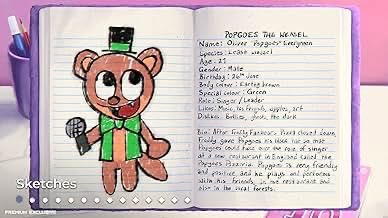 POPGOES THE WEASEL
Name: Oliver "Popgoes"
Species: Least weasel
Age: 21
Gender: Male
Birthday: 26th June
Body colour: Earthy brown
Special colour: Green
Role: Singer / Leader
Likes: Music, his friends, apples, art
Dislikes: Bullies, ghosts, the dark
Bio: After Freddy Fazbear's Pizza closed down,
Freddy gave Popgoes his black hat so that
Popgoes could take over the role of singer
at a new restaurant in England called the
Popgoes Pizzeria. Popgoes is very friendly
and positive and he plays and performs
with his friends in the restaurant and
also in the local forests.
Sketches
PREMIUM EXCLUSIVE